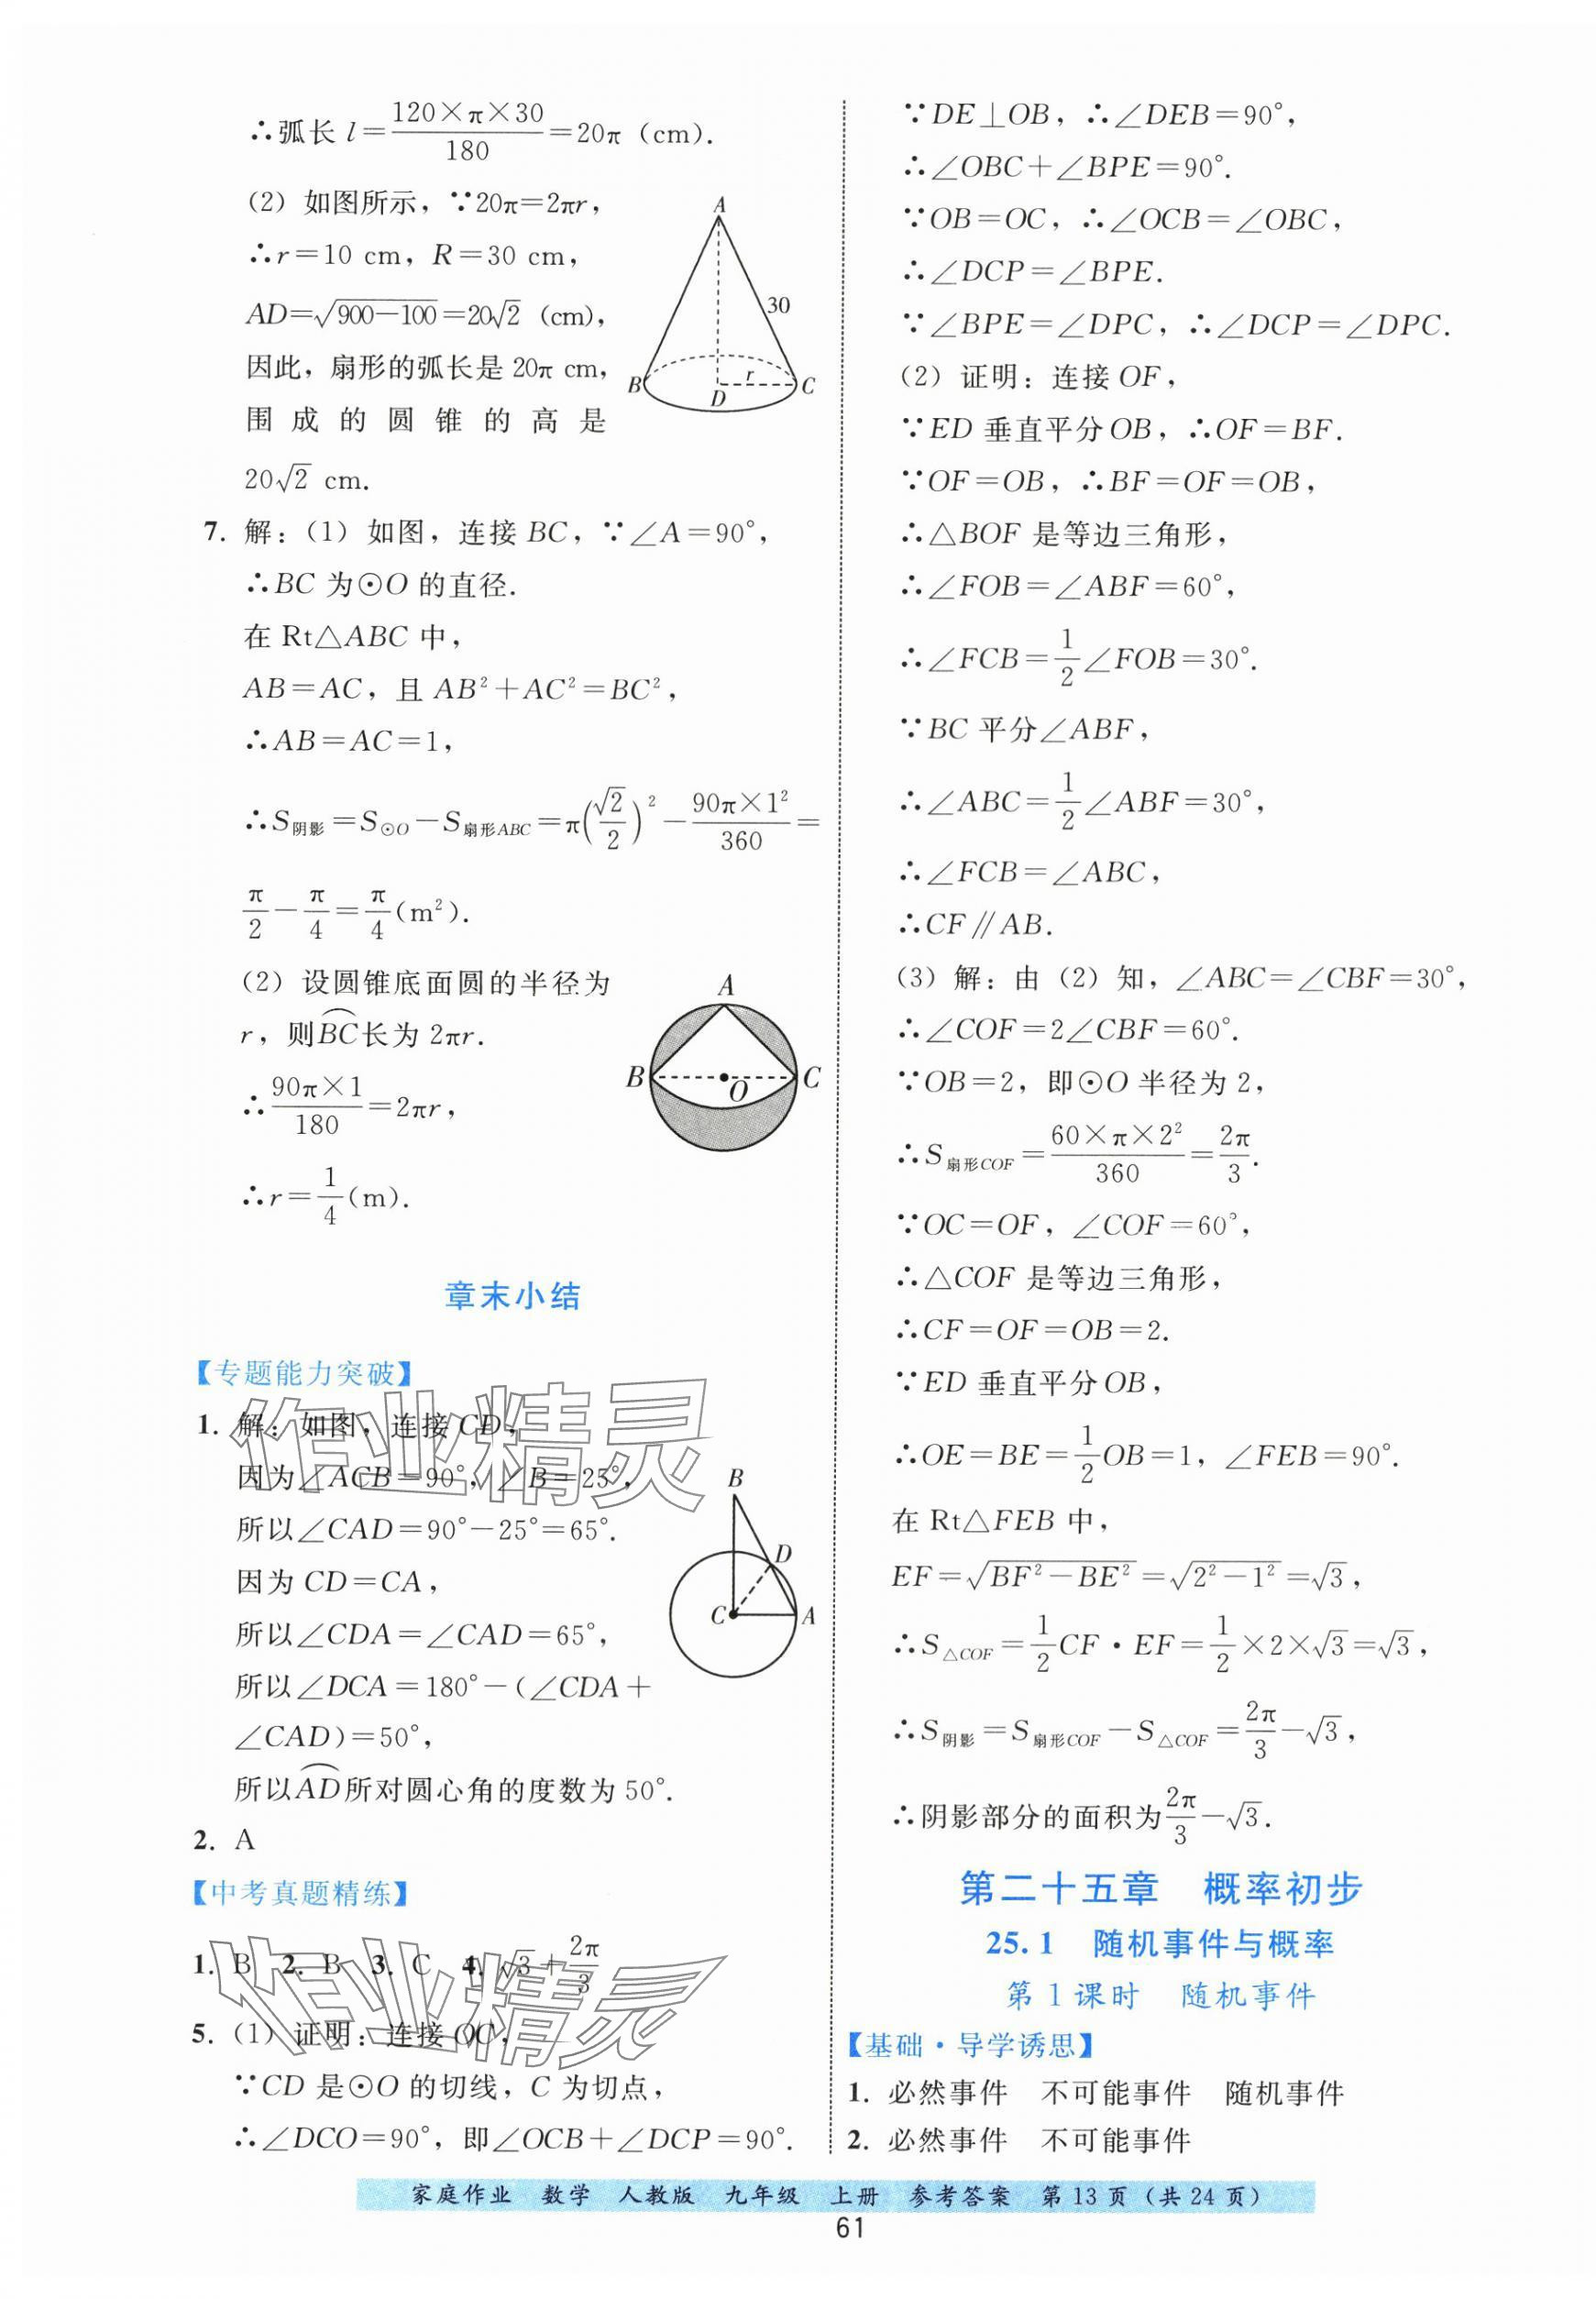 ∴弧长 l=120×π×30/180=20π (cm).
(2) 如图所示, ∵20π=2πr,
∴r=10 cm, R=30 cm,
AD=√(900−100)=20√2 (cm),
因此, 扇形的弧长是 20π cm,
围成的圆锥的高是
20√2 cm.
A
30
B
D
r
C
7. 解: (1) 如图, 连接 BC, ∵∠A=90°,
∴BC 为⊙O 的直径.
在 Rt△ABC 中,
AB=AC, 且 AB²+AC²=BC²,
∴AB=AC=1,
∴S阴影=S⊙O−S扇形ABC=π(√2/2)²−90π×1²/360=
π/2−π/4=π/4(m²).
(2) 设圆锥底面圆的半径为
r, 则BC⌒长为 2πr.
∴90π×1/180=2πr,
∴r=1/4(m).
A
B
O
C
章末小结
【专题能力突破】
1. 解: 如图, 连接 CD,
因为∠ACB=90°, ∠B=25°,
所以∠CAD=90°−25°=65°.
因为 CD=CA,
所以∠CDA=∠CAD=65°,
所以∠DCA=180°−(∠CDA+
∠CAD)=50°,
所以AD⌒所对圆心角的度数为 50°.
B
D
C
A
2. A
【中考真题精练】
1. B 2. B 3. C 4. √3+2π/3
5. (1) 证明: 连接 OC,
∵CD 是⊙O 的切线, C 为切点,
∴∠DCO=90°, 即∠OCB+∠DCP=90°.
∵DE⊥OB, ∴∠DEB=90°,
∴∠OBC+∠BPE=90°.
∵OB=OC, ∴∠OCB=∠OBC,
∴∠DCP=∠BPE.
∵∠BPE=∠DPC, ∴∠DCP=∠DPC.
(2) 证明: 连接 OF,
∵ED 垂直平分 OB, ∴OF=BF.
∵OF=OB, ∴BF=OF=OB,
∴△BOF 是等边三角形,
∴∠FOB=∠ABF=60°,
∴∠FCB=1/2∠FOB=30°.
∵BC 平分∠ABF,
∴∠ABC=1/2∠ABF=30°,
∴∠FCB=∠ABC,
∴CF∥AB.
(3) 解: 由 (2) 知, ∠ABC=∠CBF=30°,
∴∠COF=2∠CBF=60°.
∵OB=2, 即⊙O 半径为 2,
∴S扇形COF=60×π×2²/360=2π/3.
∵OC=OF, ∠COF=60°,
∴△COF 是等边三角形,
∴CF=OF=OB=2.
∵ED 垂直平分 OB,
∴OE=BE=1/2OB=1, ∠FEB=90°.
在 Rt△FEB 中,
EF=√(BF²−BE²)=√(2²−1²)=√3,
∴S△COF=1/2CF·EF=1/2×2×√3=√3,
∴S阴影=S扇形COF−S△COF=2π/3−√3,
∴阴影部分的面积为2π/3−√3.
第二十五章 概率初步
25.1 随机事件与概率
第1课时 随机事件
【基础·导学诱思】
1. 必然事件 不可能事件 随机事件
2. 必然事件 不可能事件
作业精灵
作业精灵
家庭作业 数学 人教版 九年级 上册 参考答案 第13页(共24页)
61